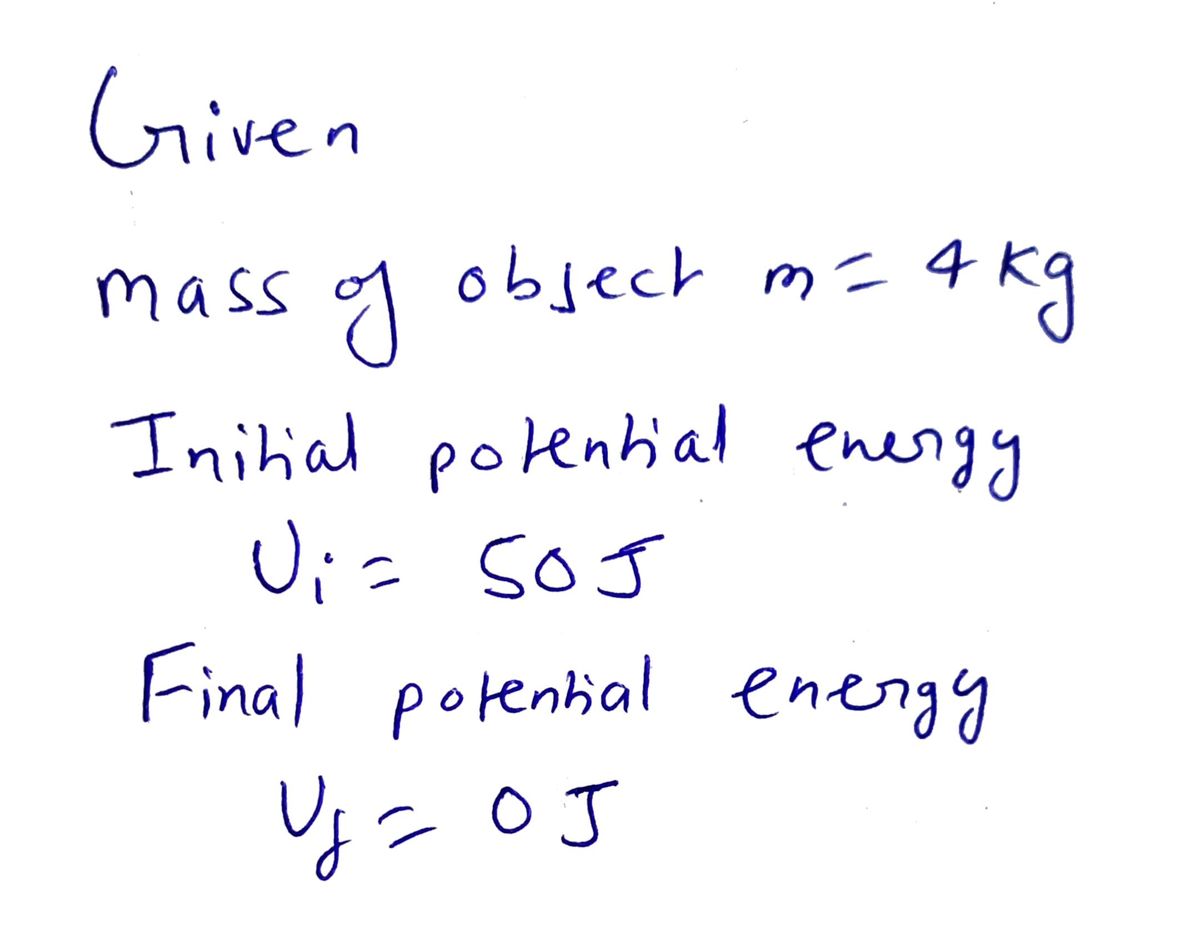 Given
mass of object m = 4 kg
Initial potential energy
Ui = 50 J
Final potential energy
Uf = 0 J